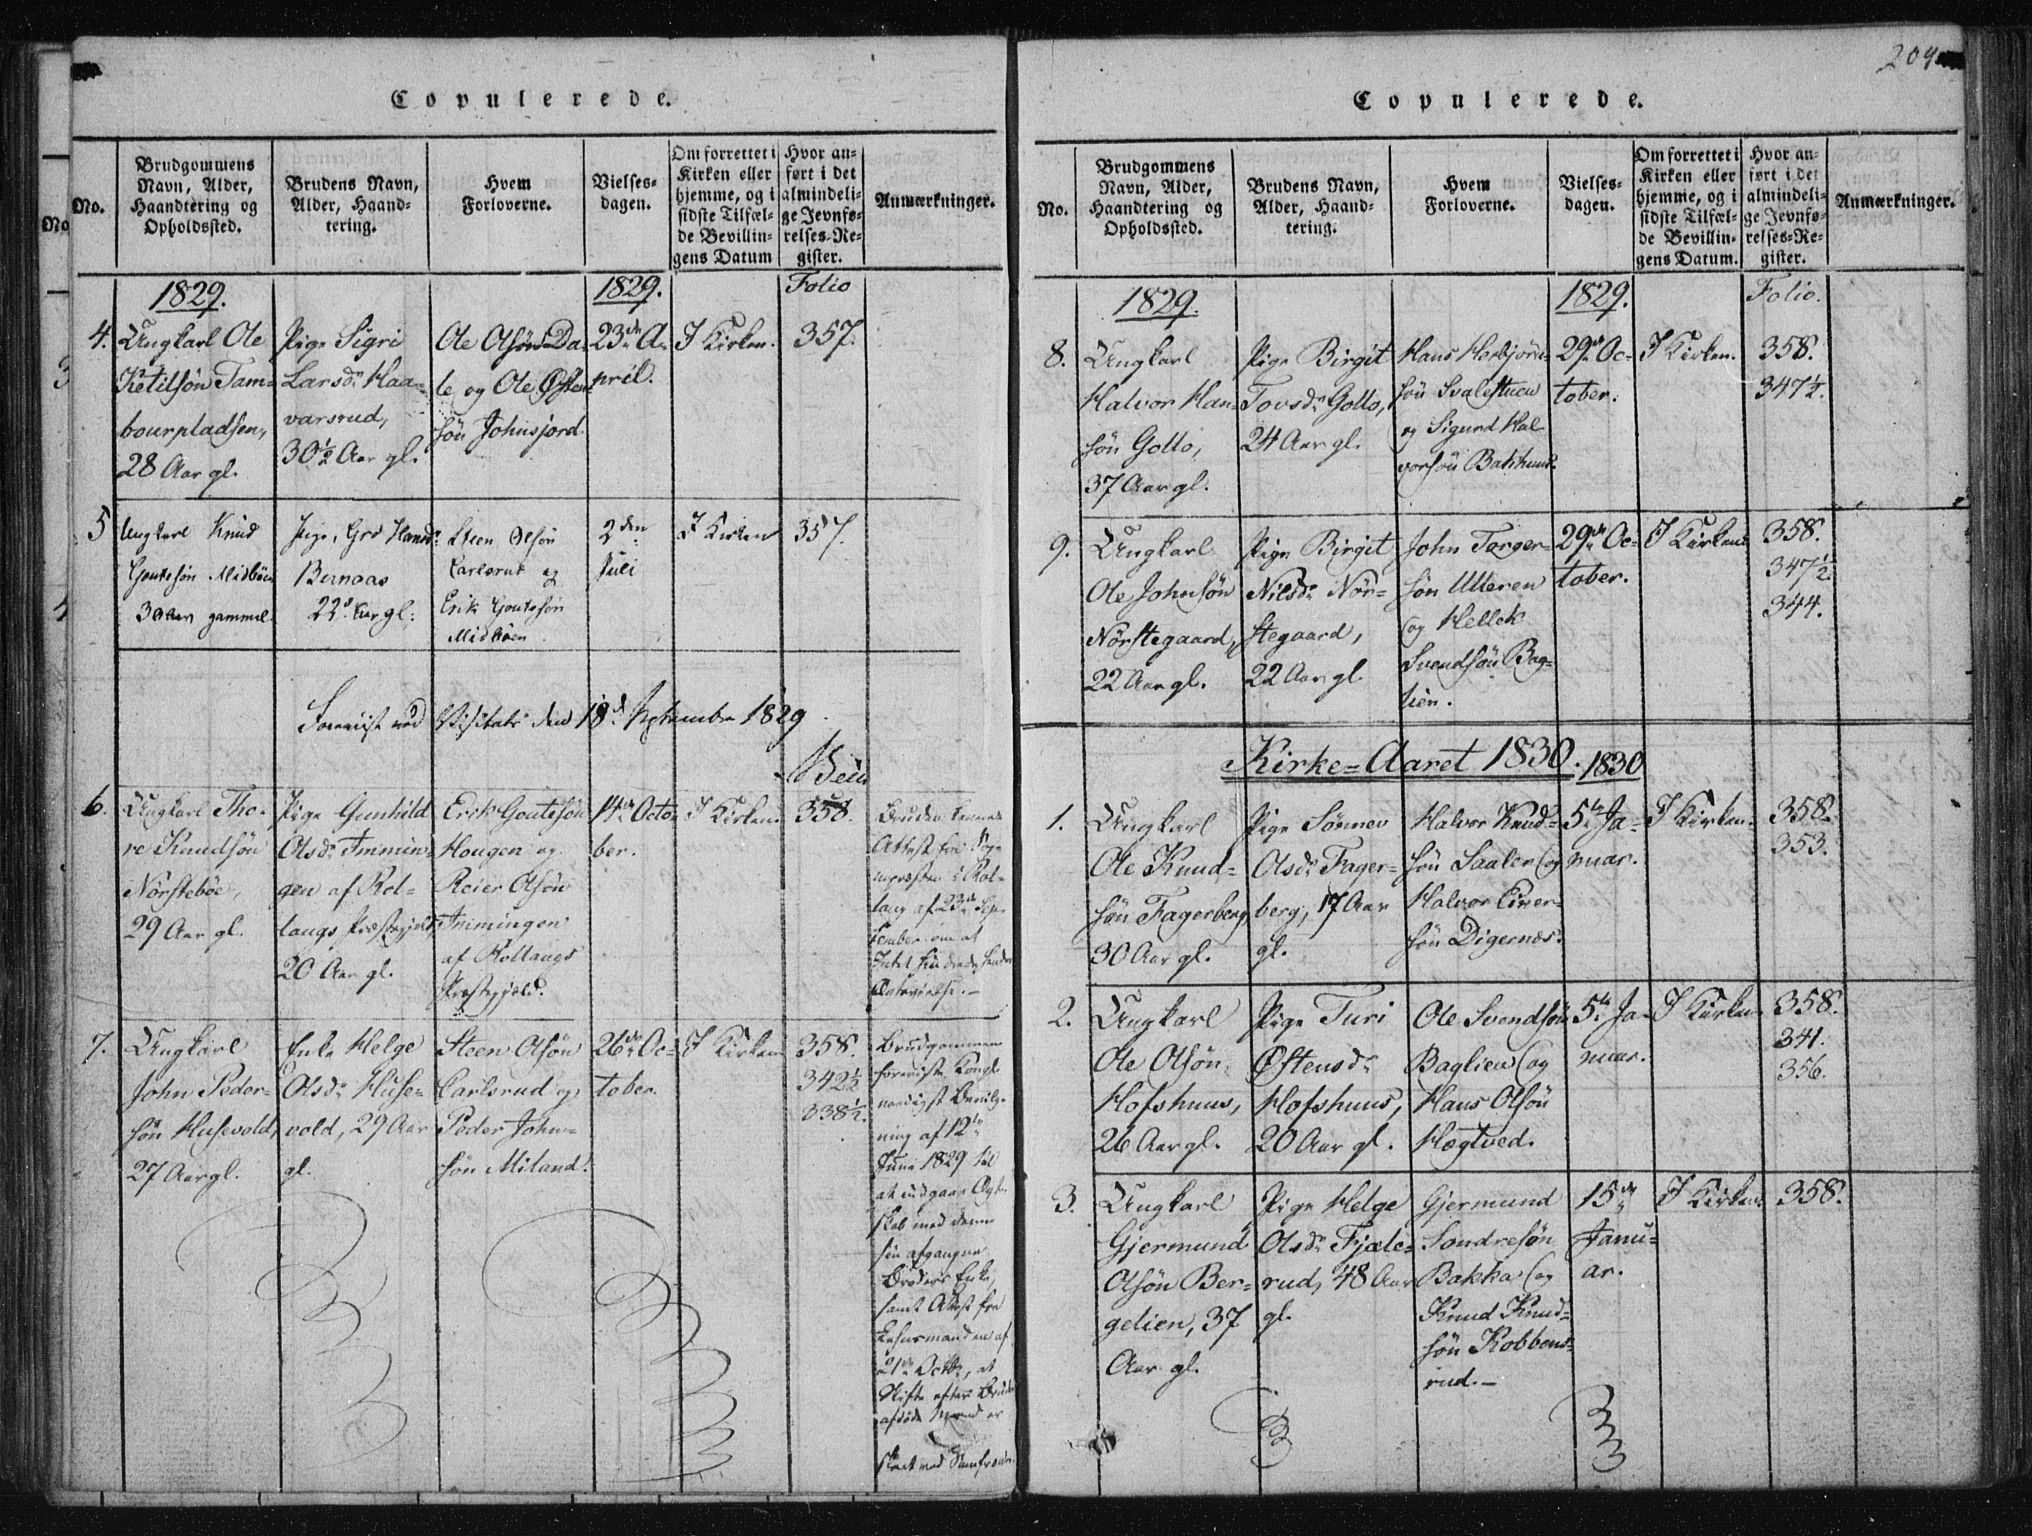 Copulerede.
No.
Brudgommens
Navn, Alder,
Haandtering og
Opholdssted.
Brudens Navn,
Alder, Haand-
tering.
Hvem
Forloverne.
Vielses-
dagen.
Om forrettet i
Kirken eller
hjemme, og i
sidste Tilfæl-
de Bevillin-
gens Datum
Hvor an-
ført i det
almindeli-
ge Jevnfø-
relses-Re-
gister.
Anmærkninger.
1829.
1829.
Folio
4.
Ungkarl Ole
Ketilsøn Tam-
bourpladsen,
28 Aar gl.
Pige Sigri
Larsdr. Haa-
varsrud,
30½ Aar gl.
Ole Olsøn Da-
le og Ole Østen-
søn Johnsjord.
23de A-
pril.
I Kirken.
357.
5
Ungkarl Knud
Goutesøn Midbøen
30 Aar gammel.
Pige, Gro Hansdr.
Bernaas
22 Aar gl:
Steen Olsøn
Carlsrut og
Erik Goutesøn
Midbøen
2den
Juli
I Kirken
357.
Foreviist ved Visitats den 18de September 1829
6.
Ungkarl Tho-
re Knudsøn
Nørstebøe,
29 Aar gl.
Pige Gunhild
Olsdr. Immin-
gen af Rol-
laugs Præstegjeld,
20 Aar gl.
Erik Goutesøn
Hougen og
Reier Olsøn
Immingen
af Rollaugs
Præstegjeld.
14de Octo-
ber.
I Kirken.
358.
Bruden havde
Attest fra Sog-
nepræsten i Rol-
laug af 23de Sep-
tember om at
Intet hindrede hendes
7.
Ungkarl
John Peder-
søn Husevold,
27 Aar gl.
Enke Helge
Olsdr. Huse-
vold, 29 Aar
gl.
Steen Olsøn
Carlsrud og
Peder John-
søn Miland.
26de Oc-
tober.
I Kirken
358.
342½
338½.
Brudgommen
foreviste Kongl.
naadigst Bevilg-
ning af 12te
Juni 1829 til
at indgaae Ægte-
skab med denne
sin afgangne
Broders Enke,
samt Attest fra
Lehnsmanden af
21de Octbr., at
Skifte efter Brudens
afdøde Mand er
sluttet ved Samfrænder.
204
Copulerede.
No.
Brudgommens
Navn, Alder,
Haandtering og
Opholdssted.
Brudens Navn,
Alder, Haand-
tering.
Hvem
Forloverne.
Vielses-
dagen.
Om forrettet i
Kirken eller
hjemme, og i
sidste Tilfæl-
de Bevillin-
gens Datum.
Hvor an-
ført i det
almindeli-
ge Jevnfø-
relses-Re-
gister.
Anmærkninger.
1829.
1829.
Folio.
8.
Ungkarl
Halvor Han-
søn Gollo,
37 Aar gl.
Pige Birgit
Tovsdr. Gollo,
24 Aar gl.
Hans Herbjørn-
søn Svalestuen
og Sigurd Hal-
vorsøn Bakhuus.
29de Oc-
tober.
I Kirken.
358.
347½.
9.
Ungkarl
Ole Johnsøn
Nørstegaard,
22 Aar gl.
Pige Birgit
Nilsdr. Nør-
stegaard,
22 Aar gl.
John Torger-
søn Ulleren
og Hellek
Svendsøn Bag-
lien.
29de Oc-
tober.
I Kirken.
358.
347½.
344.
Kirke-Aaret 1830.
1830
1.
Ungkarl
Ole Knud-
søn Fagerberg,
30 Aar gl.
Pige Sønnev
Olsdr. Fager-
berg, 17 Aar
gl.
Halvor Knud-
søn Saaler og
Halvor Einer-
søn Digernæs.
5te Ja-
nuar.
I Kirken.
358.
353.
2.
Ungkarl
Ole Olsøn
Hofshuus,
26 Aar gl.
Pige Turi
Østensdr.
Hofshuus,
20 Aar gl.
Ole Svendsøn
Baglien og
Hans Olsøn
Hægtved.
5te Ja-
nuar.
I Kirken.
358.
341.
356.
3.
Ungkarl
Gjermund
Olsøn Ber-
gelien, 37
Aar gl.
Pige Helge
Olsdr. Fjæle-
rud, 48 Aar
gl.
Gjermund
Sondresøn
Bakka og
Knud Knud-
søn Kobbens-
rud.
15de
Janu-
ar.
I Kirken.
358.